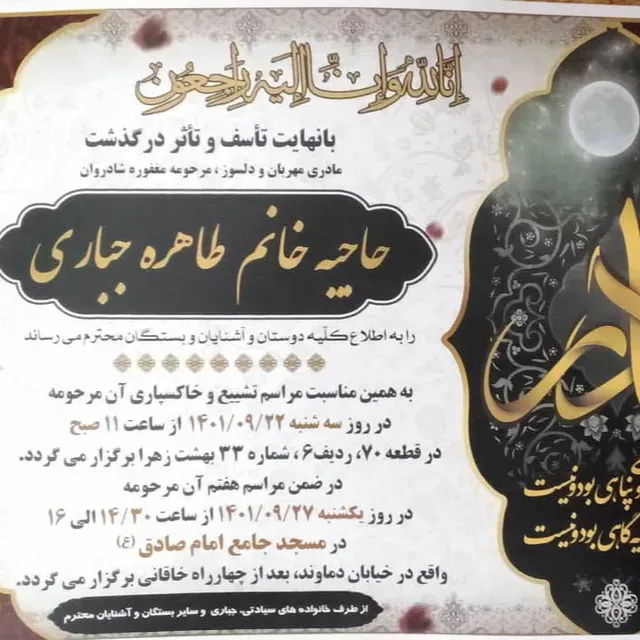 انا لله و انا الیه راجعون
با نهایت تأسف و تأثر درگذشت
مادری مهربان و دلسوز، مرحومه مغفوره شادروان
حاجیه خانم طاهره جباری
را به اطلاع کلّیه دوستان و آشنایان و بستگان محترم می رساند
به همین مناسبت مراسم تشییع و خاکسپاری آن مرحومه
در روز سه شنبه ۱۴۰۱/۰۹/۲۲ از ساعت ۱۱ صبح
در قطعه ۷۰، ردیف۶، شماره ۳۳ بهشت زهرا برگزار می گردد.
در ضمن مراسم هفتم آن مرحومه
در روز یکشنبه ۱۴۰۱/۰۹/۲۷ از ساعت ۱۴/۳۰ الی ۱۶
در مسجد جامع امام صادق (ع)
واقع در خیابان دماوند، بعد از چهارراه خاقانی برگزار می گردد.
از طرف خانواده های سیادتی، جباری و سایر بستگان و آشنایان محترم
پناهی بود و نیست
گاهی بود و نیست